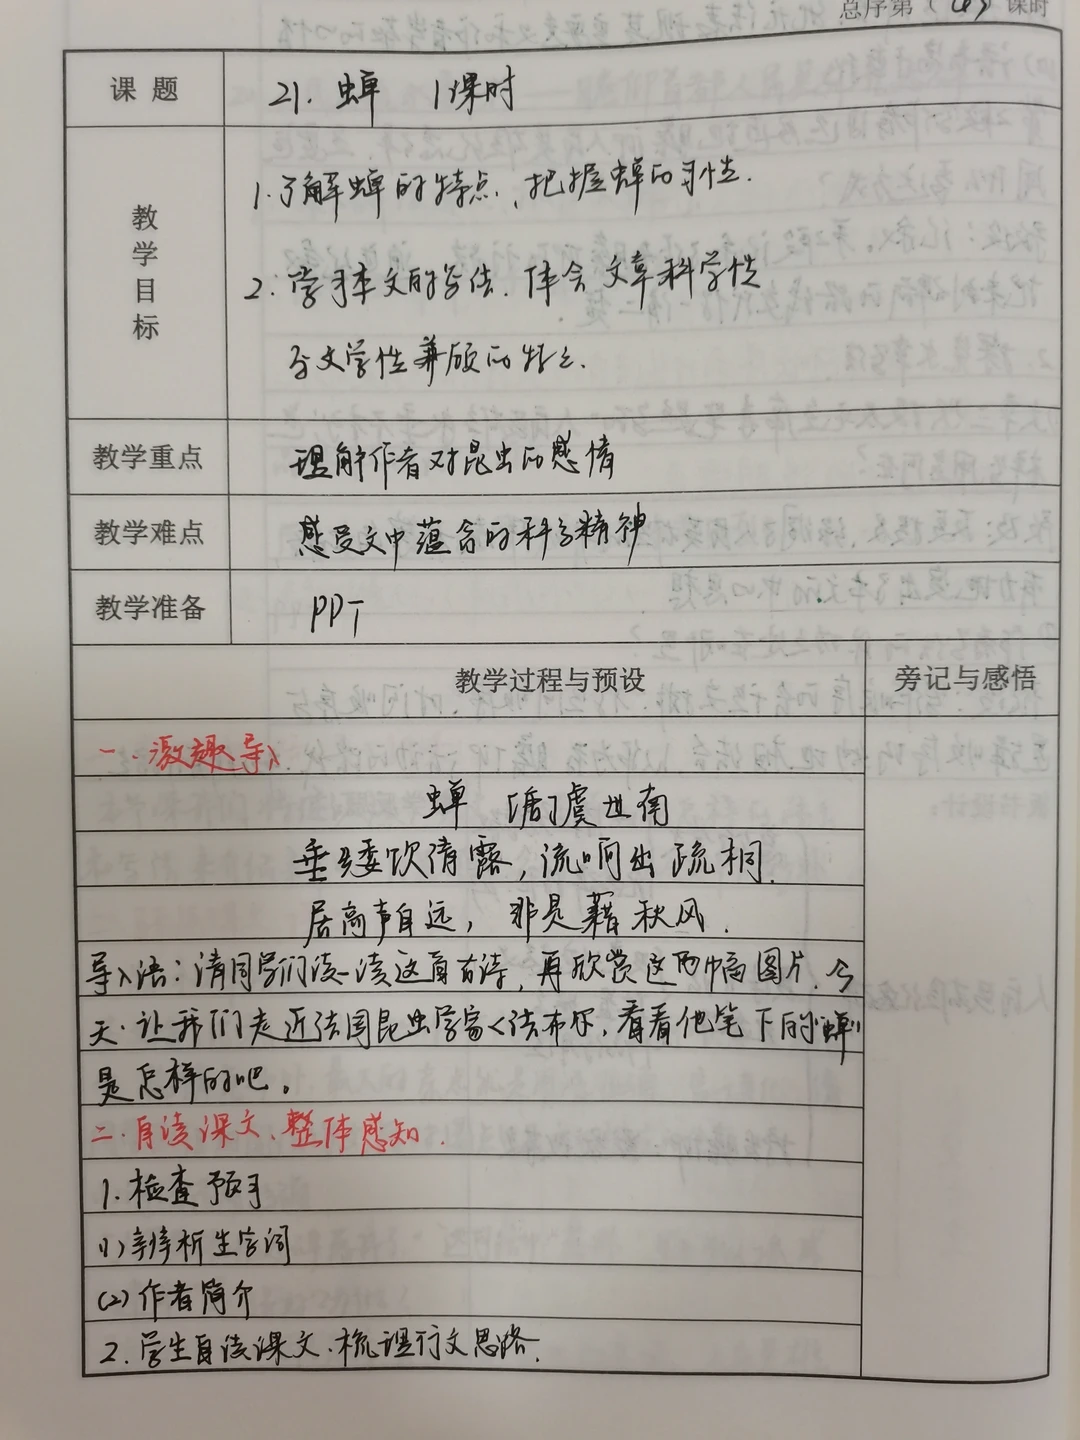 总序第（ ）课时
课 题
21. 蝉 1课时
教学目标
1.了解蝉的特点、把握蝉的习性.
2.学习本文的写法.体会文章科学性
与文学性兼顾的特点.
教学重点
理解作者对昆虫的感情
教学难点
感受文中蕴含的科学精神
教学准备
PPT
教学过程与预设
旁记与感悟
一.激趣导入
蝉 唐 虞世南
垂緌饮清露，流响出疏桐.
居高声自远，非是藉秋风.
导入语：请同学们读一读这首古诗，再欣赏这两幅图片.今
天.让我们走近法国昆虫学家法布尔，看看他笔下的“蝉”
是怎样的吧。
二.自读课文、整体感知.
1.检查预习
(1)辨析生字词
(2)作者简介
2.学生自读课文.梳理行文思路.